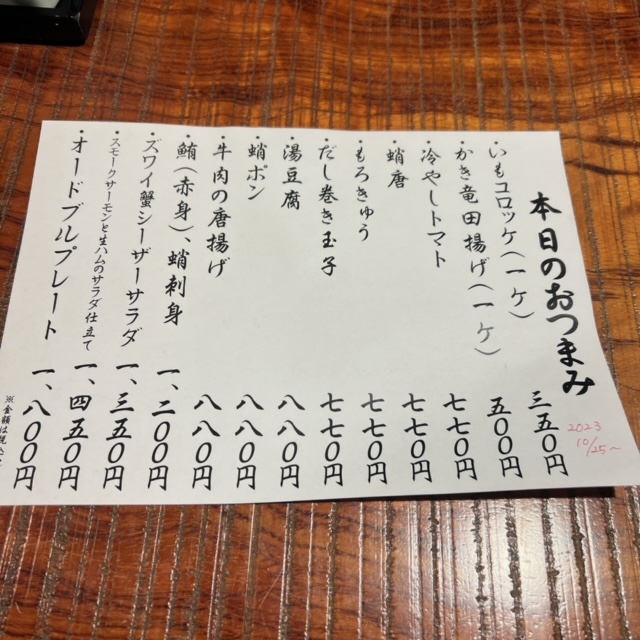 本日のおつまみ
2023
10/25〜
・いもコロッケ(一ケ) 三五〇円
・かき竜田揚げ(一ケ) 五〇〇円
・冷やしトマト 七七〇円
・蛸唐 七七〇円
・もろきゅう 七七〇円
・だし巻き玉子 七七〇円
・湯豆腐 八八〇円
・蛸ポン 八八〇円
・牛肉の唐揚げ 八八〇円
・鮪(赤身)、蛸刺身 一、二〇〇円
・ズワイ蟹シーザーサラダ 一、三五〇円
・スモークサーモンと生ハムのサラダ仕立て 一、四五〇円
・オードブルプレート 一、八〇〇円
※金額は税込